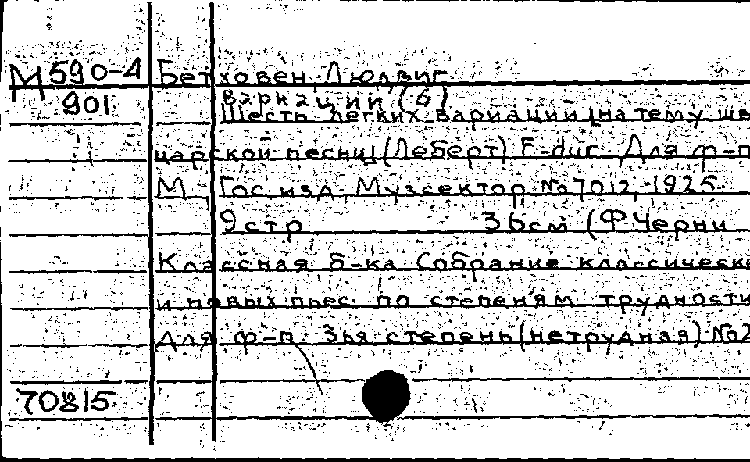 М 590-4 Бетховен, Людвиг
901 Вариации (6)
Шесть легких вариаций на тему шв
царской песни (Леберт) F-dur. Для ф-п
М., Гос. изд. Музсектор, №7012, 1925
9 стр 36см (Ф.Черни
Классная б-ка Собрание классически
и новых пьес по степеням трудности
Для ф-п. 3ья степень (нетрудная) №2
70815